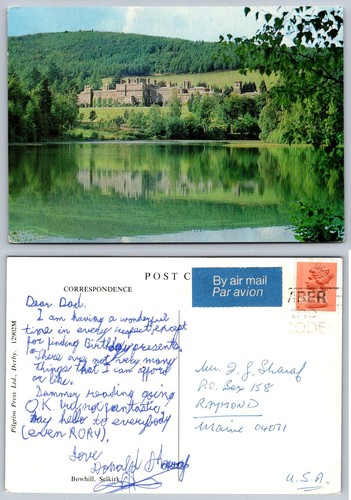 POST C
CORRESPONDENCE
By air mail
Par avion
Dear Dad,
I am having a wonderful
time in every respect except
for finding Birthday presents
There are not very many
things that I can afford
or like.
Summer reading going
O.K. but not fantastic.
Say hello to everybody
(even RORY).
Love
Donald
P.O. Box 158
RAYMOND
Maine 04071
U.S.A.
Bowhill, Selkirk.
Pilgrim Press Ltd., Derby. 12902M
CODE